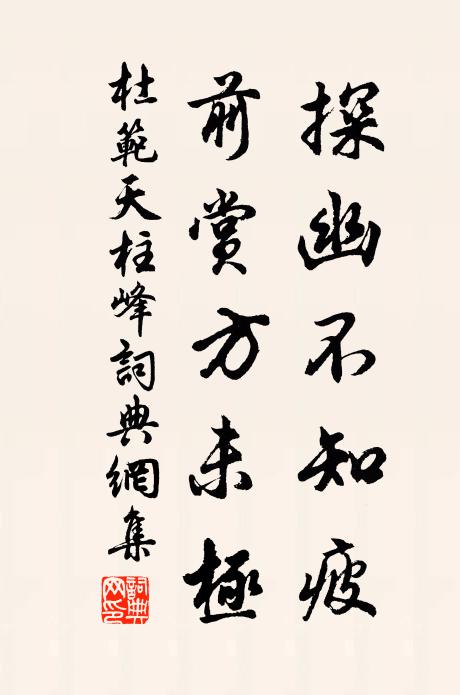 探幽不知疲
前賞方未極
杜範天柱峰詞典網集
詞典网印